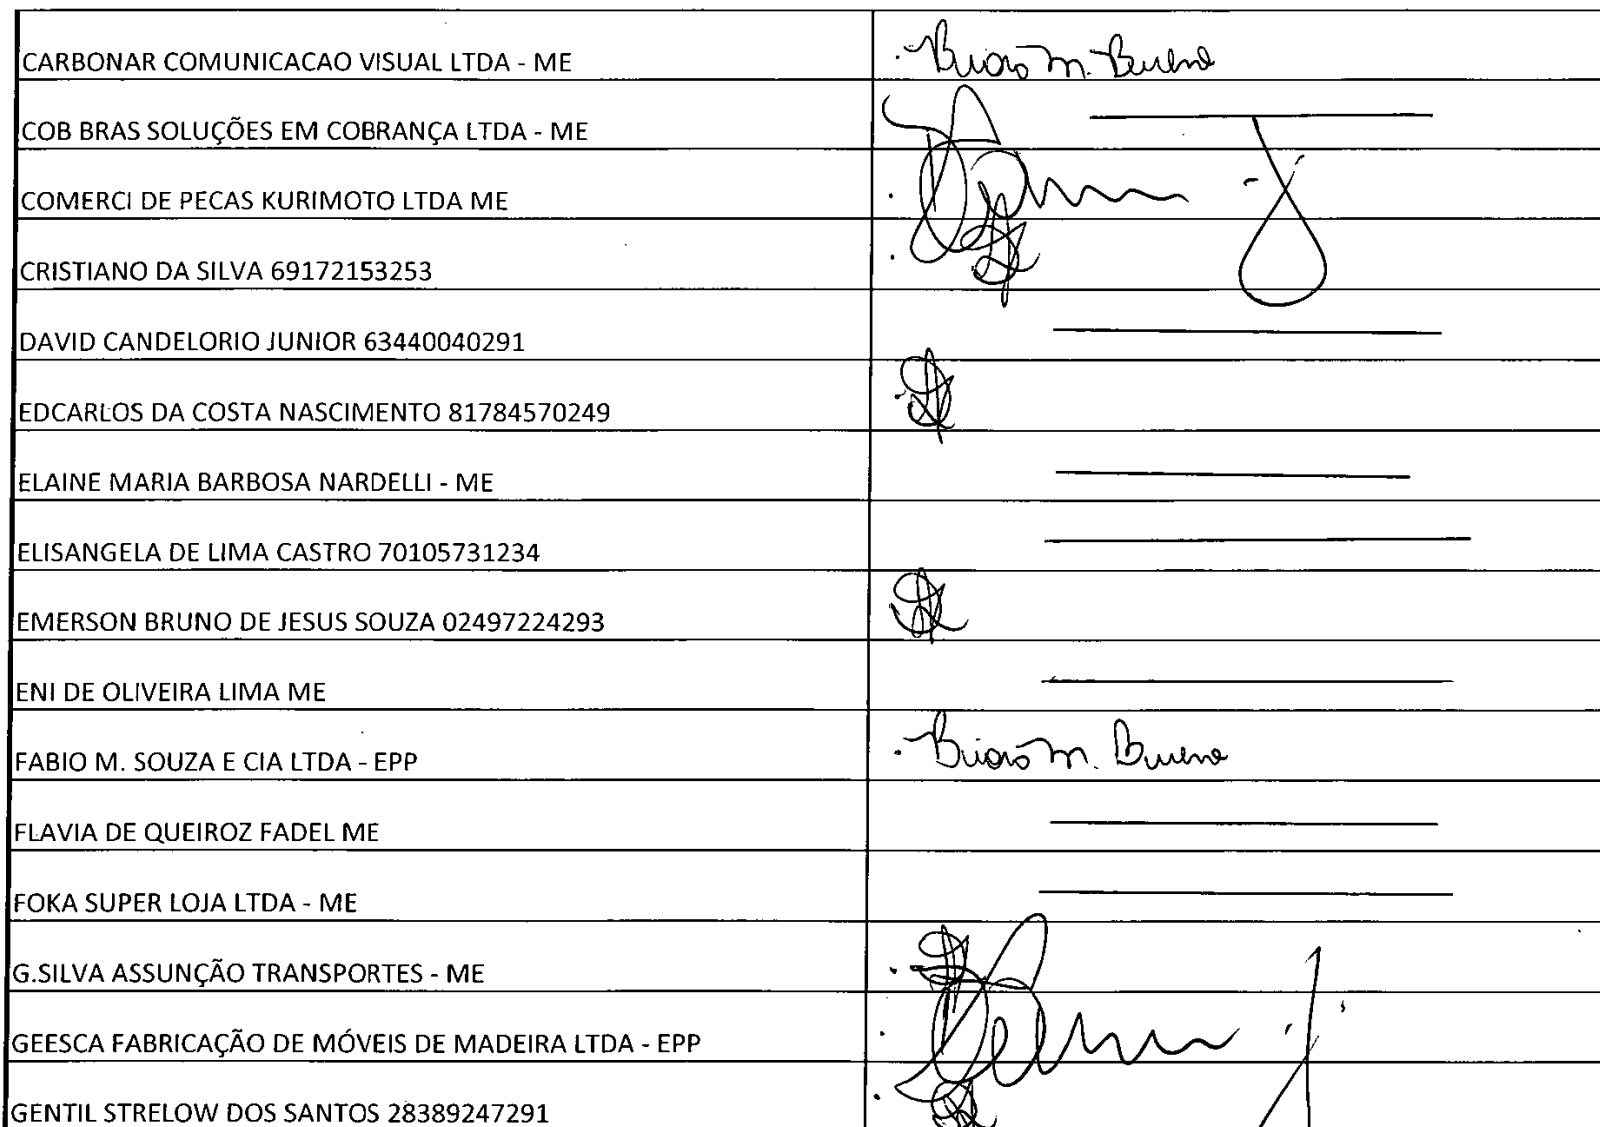 CARBONAR COMUNICACAO VISUAL LTDA - ME
COB BRAS SOLUÇÕES EM COBRANÇA LTDA - ME
COMERCI DE PECAS KURIMOTO LTDA ME
CRISTIANO DA SILVA 69172153253
DAVID CANDELORIO JUNIOR 63440040291
EDCARLOS DA COSTA NASCIMENTO 81784570249
ELAINE MARIA BARBOSA NARDELLI - ME
ELISANGELA DE LIMA CASTRO 70105731234
EMERSON BRUNO DE JESUS SOUZA 02497224293
ENI DE OLIVEIRA LIMA ME
FABIO M. SOUZA E CIA LTDA - EPP
FLAVIA DE QUEIROZ FADEL ME
FOKA SUPER LOJA LTDA - ME
G.SILVA ASSUNÇÃO TRANSPORTES - ME
GEESCA FABRICAÇÃO DE MÓVEIS DE MADEIRA LTDA - EPP
GENTIL STRELOW DOS SANTOS 28389247291